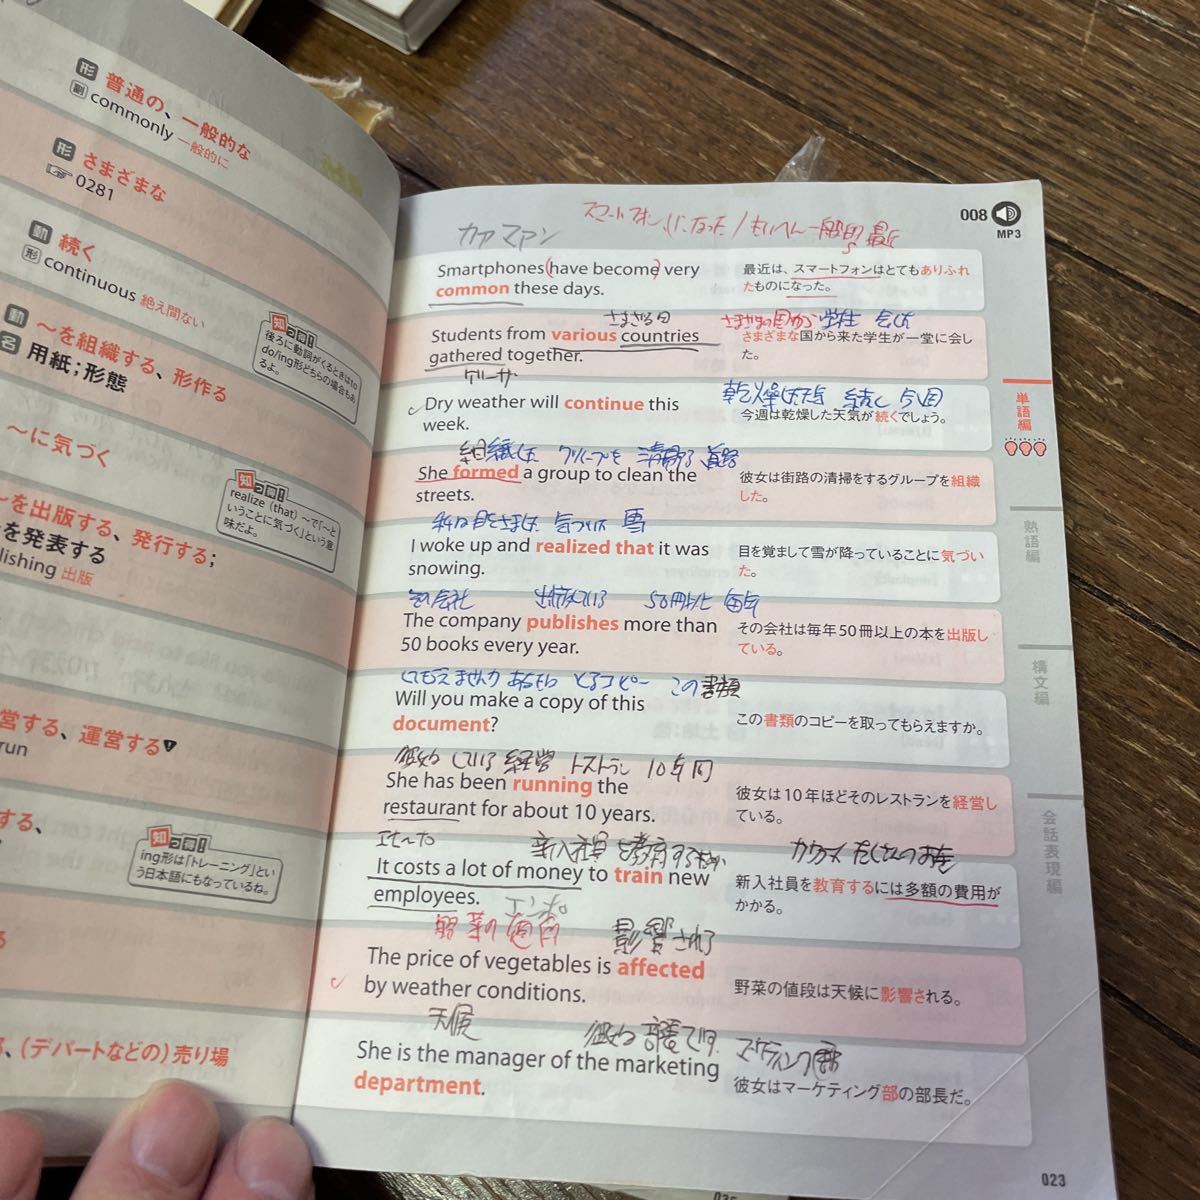 形 普通の、一般的な
副 commonly 一般的に
形 さまざまな
☞ 0281
動 続く
形 continuous 絶え間ない
知っ得!
後ろに動詞がくるときはto
do/ing形どちらの場合もあ
るよ。
動 ～を組織する、形作る
名 用紙；形態
～に気づく
知っ得!
realize (that) ～で「～と
いうことに気づく」という意
味だよ。
～を出版する、発行する；
を発表する
publishing 出版
営する、運営する
run
する、
知っ得!
ing形は「トレーニング」とい
う日本語にもなっているね。
る
、(デパートなどの)売り場
008
MP3
カァマァン
Smartphones (have become) very
common these days.
最近は、スマートフォンはとてもありふれ
たものになった。
Students from various countries
gathered together.
さまざまな国から来た学生が一堂に会し
た。
Dry weather will continue this
week.
今週は乾燥した天気が続くでしょう。
組織した グループを 清掃する 道路
She formed a group to clean the
streets.
彼女は街路の清掃をするグループを組織
した。
I woke up and realized that it was
snowing.
目を覚まして雪が降っていることに気づい
た。
その会社 出版している 50冊以上 毎年
The company publishes more than
50 books every year.
その会社は毎年50冊以上の本を出版し
ている。
この書類
Will you make a copy of this
document?
この書類のコピーを取ってもらえますか。
経営 10年間
She has been running the
restaurant for about 10 years.
彼女は10年ほどそのレストランを経営し
ている。
It costs a lot of money to train new
employees.
新入社員を教育するには多額の費用が
かかる。
野菜の値段 影響される
The price of vegetables is affected
by weather conditions.
野菜の値段は天候に影響される。
天候
She is the manager of the marketing
department.
彼女はマーケティング部の部長だ。
単語編
熟語編
構文編
会話表現編
023